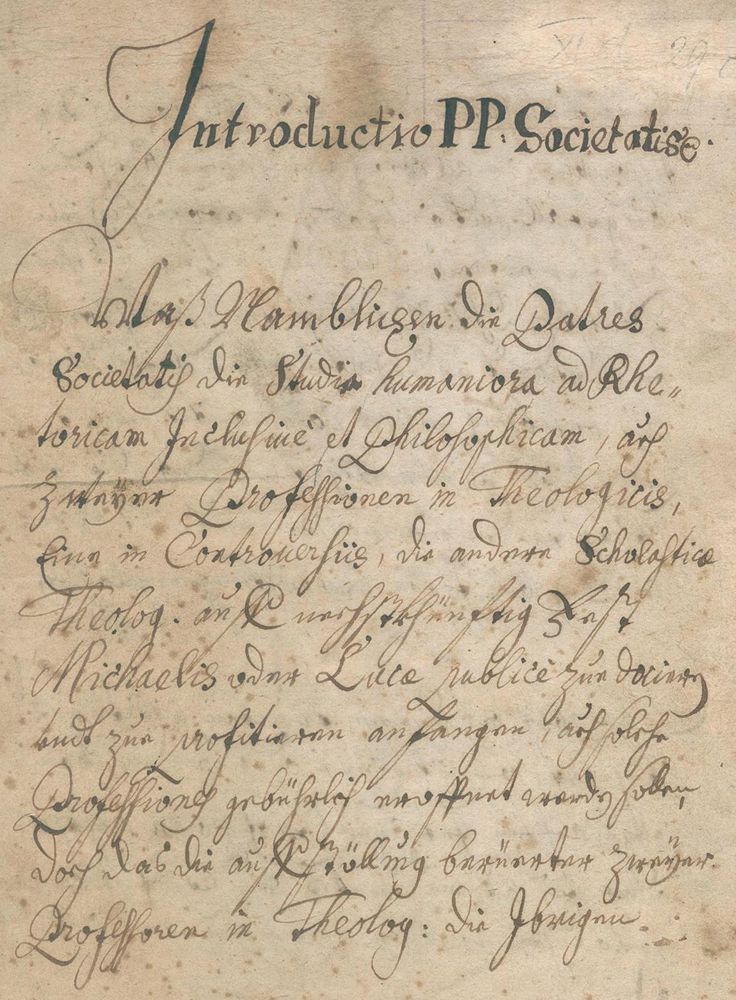 Introductio PP. Societatis
Waß Namblichen die Patres
Societatis die Studia humaniora ad Rhe=
toricam Inclusiué et Philosophicam, auch
zweyer Professionen in Theologicis,
Eine in Controuersiis, die andere Scholasticæ
Theolog. auff nechstkhünfftig Fest
Michaelis oder Lucæ publicè zue dociern
undt zue profitieren anfangen, auch solche
Professiones gebührlich eröffnet werden sollen,
doch das die auffstöllung berüerter zweyer
Professoren in Theolog: die Ibrigen